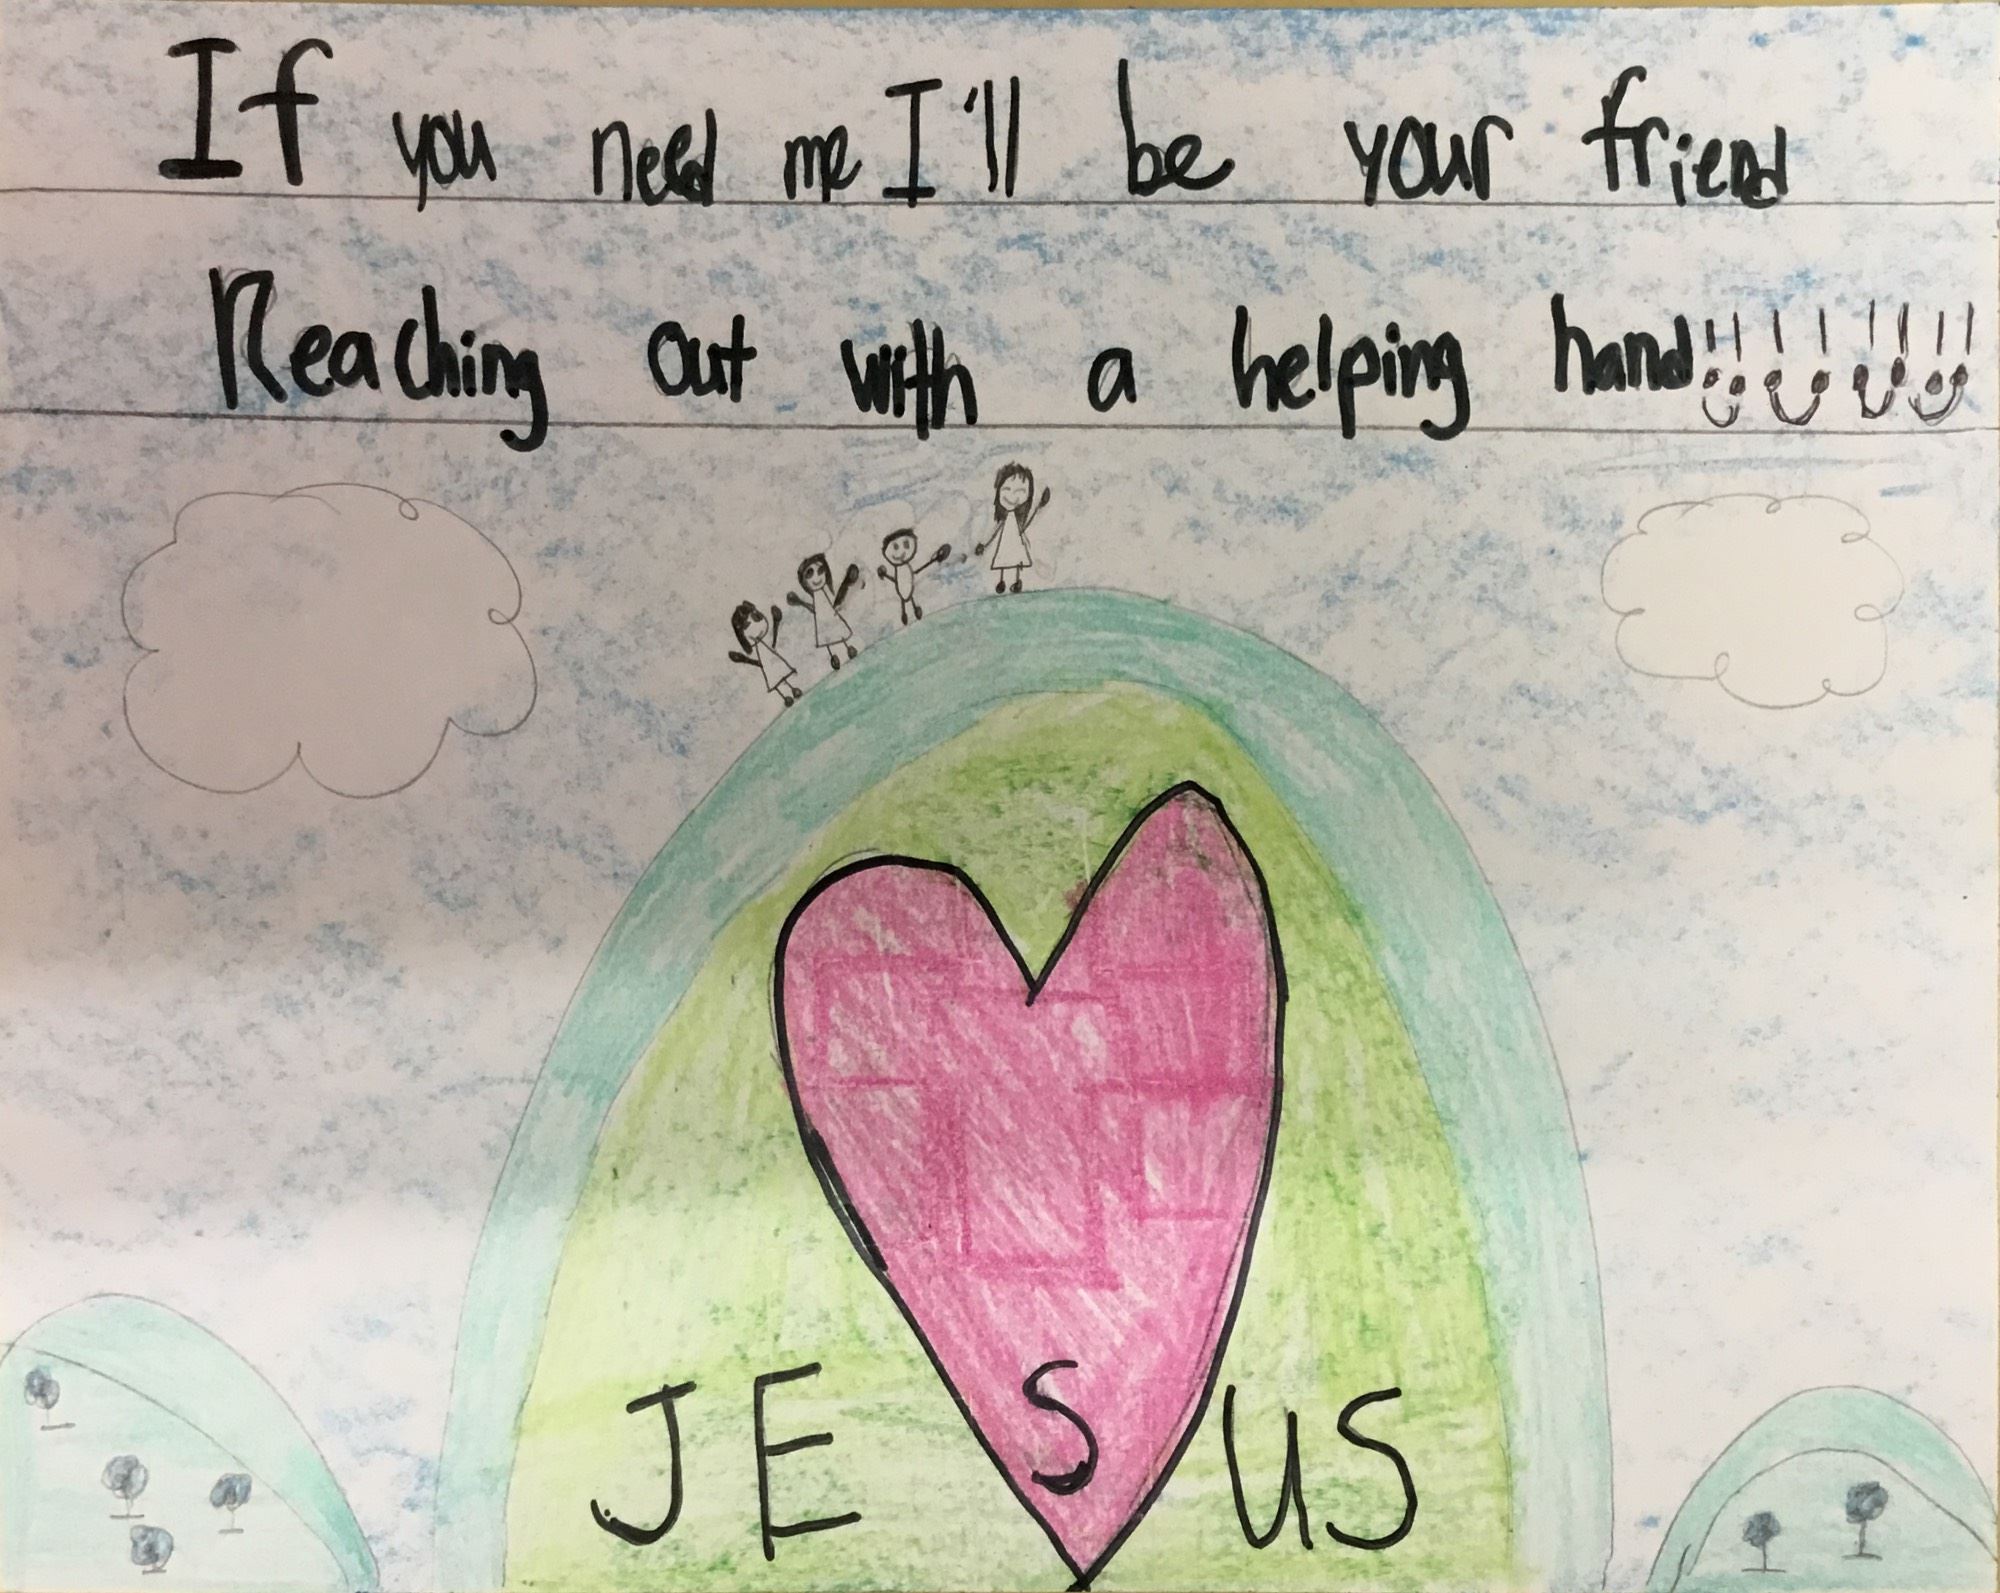 If you need me I'll be your friend
Reaching out with a helping hand!!!!!!!!
JESUS